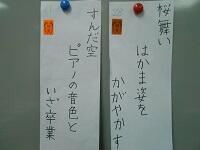 桜舞い
はかま姿を
かがやかす
すんだ空
ピアノの音色と
いざ卒業